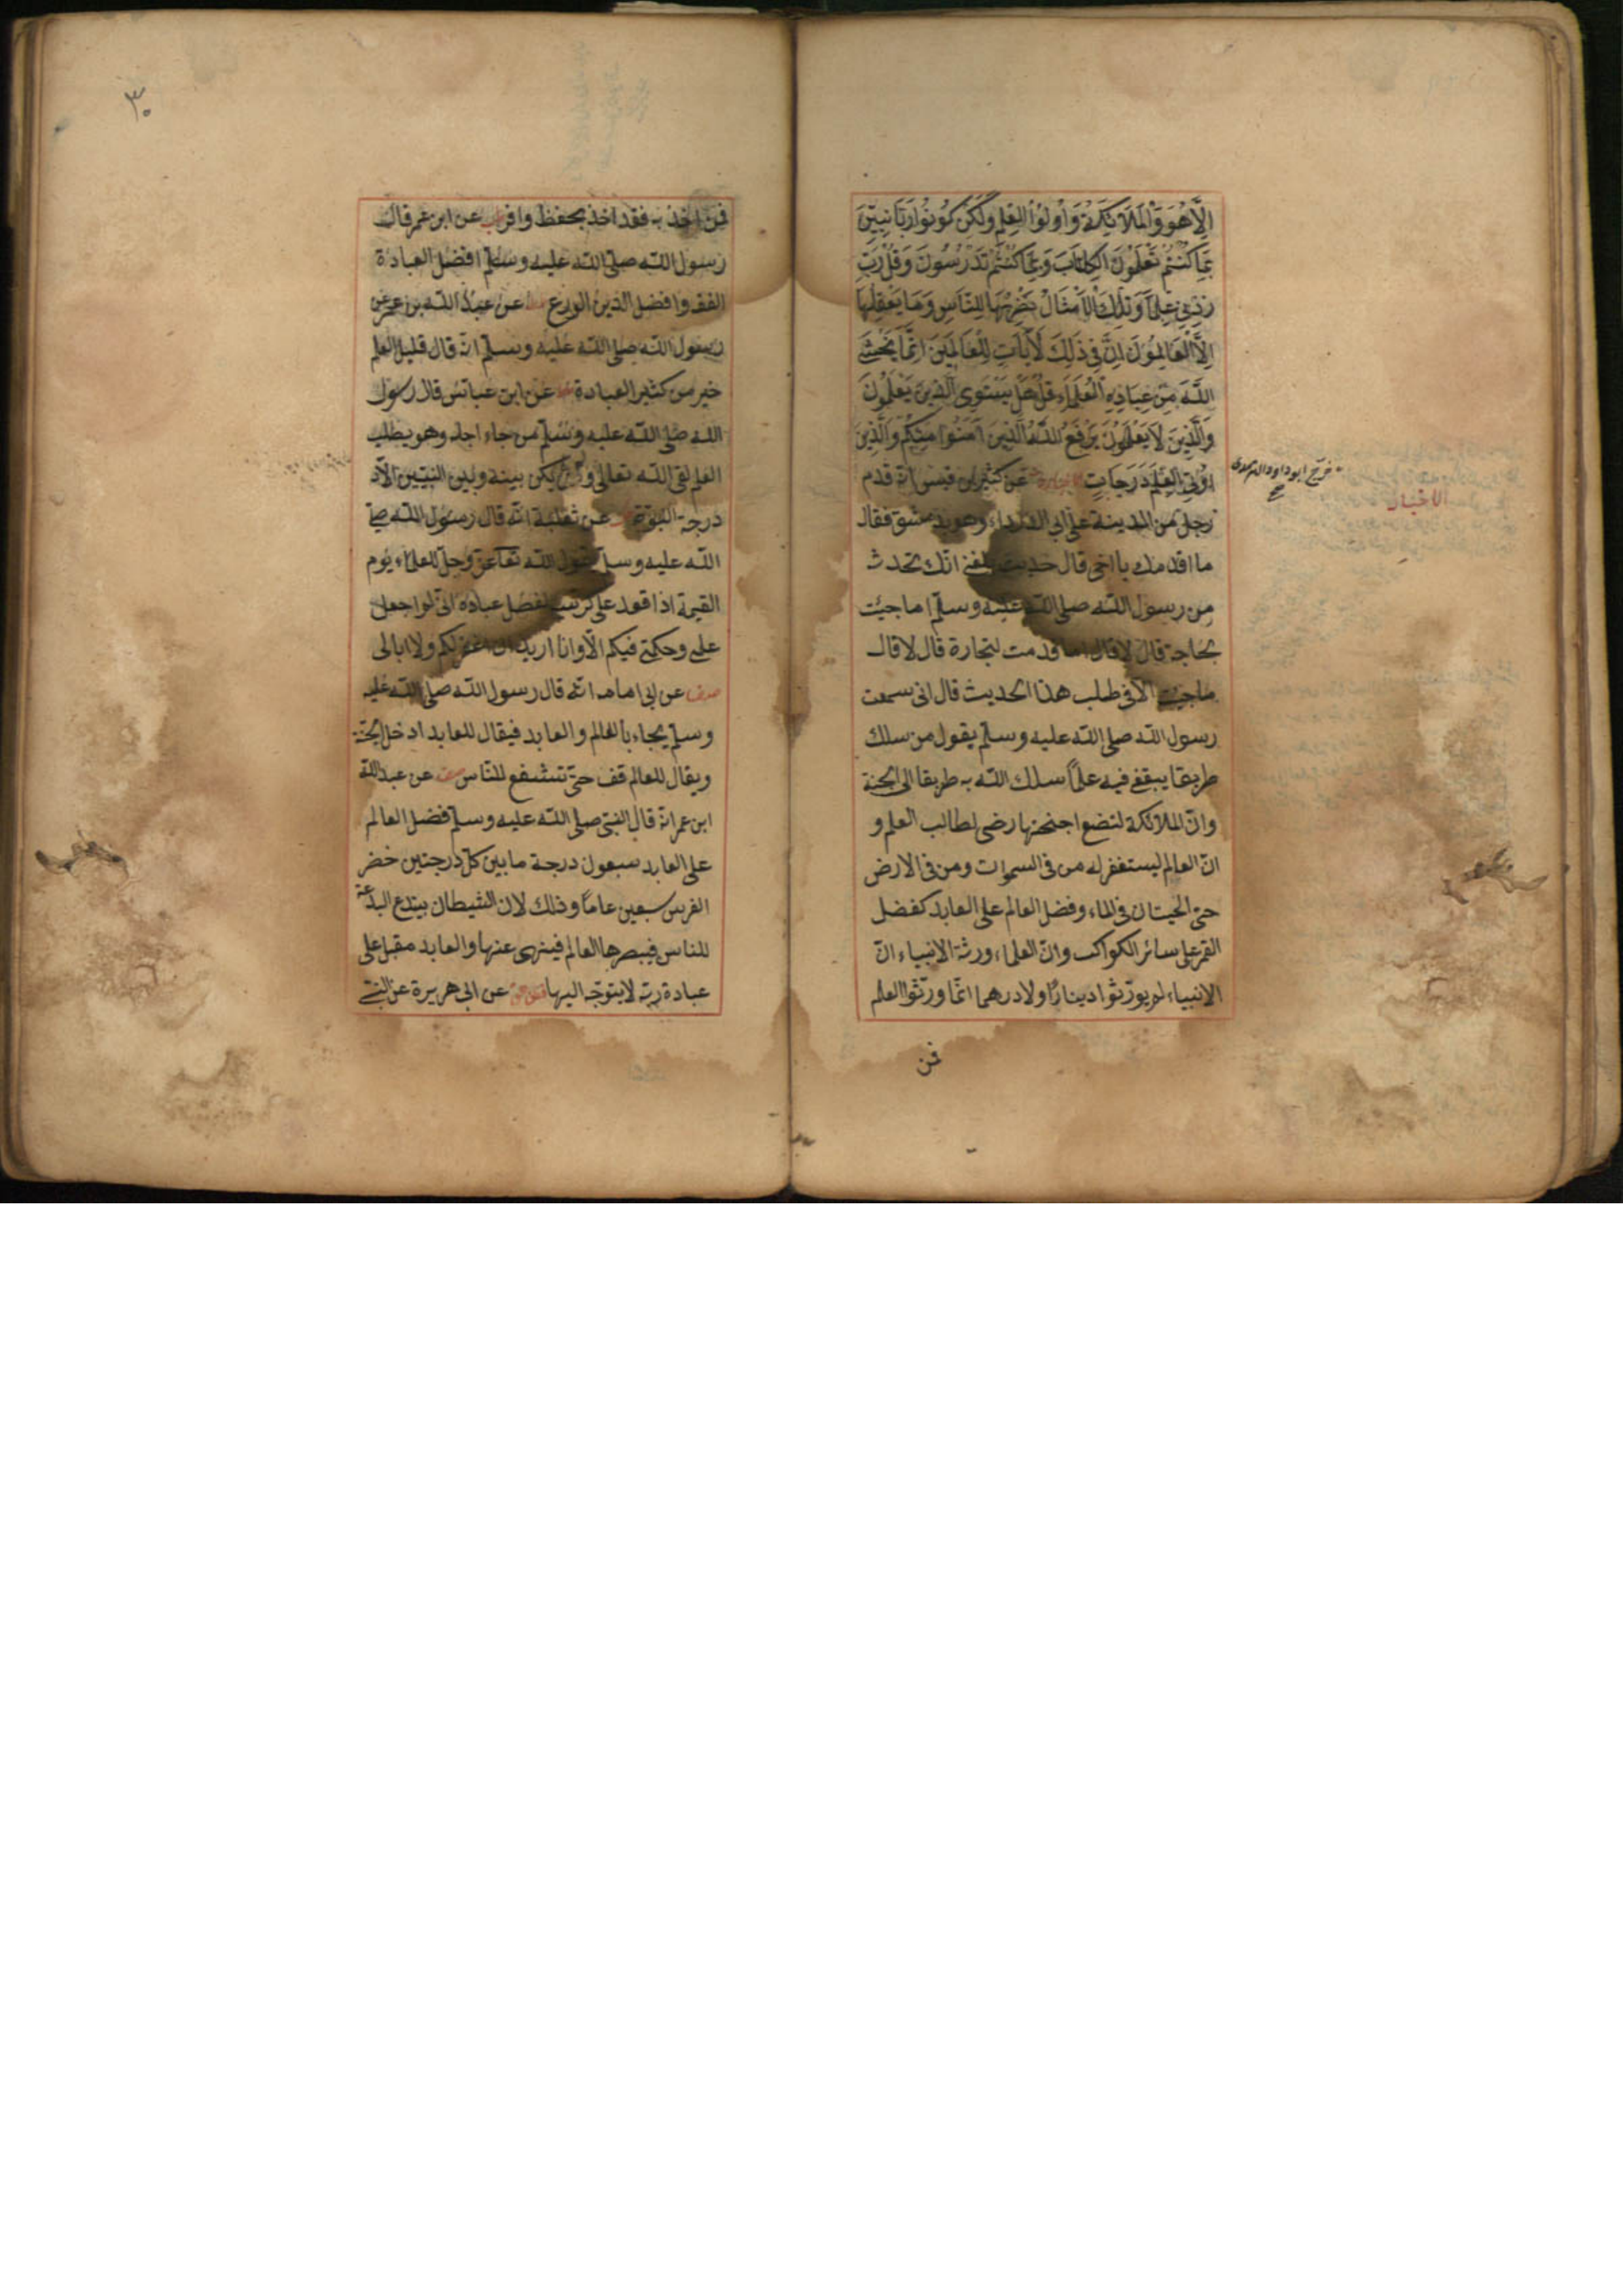 اِلَّا هُوَ وَالْمَلَائِكَةُ وَاُولُوا الْعِلْمِ وَلَكِنْ كُونُوا رَبَّانِيِّينَ
بِمَا كُنْتُمْ تُعَلِّمُونَ الْكِتَابَ وَبِمَا كُنْتُمْ تَدْرُسُونَ وَقُلْ رَبِّ
زِدْنِي عِلْمًا وَتِلْكَ الْاَمْثَالُ نَضْرِبُهَا لِلنَّاسِ وَمَا يَعْقِلُهَا
اِلَّا الْعَالِمُونَ اِنَّ فِي ذَلِكَ لَآيَاتٍ لِلْعَالَمِينَ اِنَّمَا يَخْشَى
اللّٰهَ مِنْ عِبَادِهِ الْعُلَمَاءُ قُلْ هَلْ يَسْتَوِي الَّذِينَ يَعْلَمُونَ
وَالَّذِينَ لَا يَعْلَمُونَ يَرْفَعُ اللّٰهُ الَّذِينَ آمَنُوا مِنْكُمْ وَالَّذِينَ
اُوتُوا الْعِلْمَ دَرَجَاتٍ عن كثير بن قيس انه قدم
رجل من المدينة على ابى الدرداء وهو بدمشق فقال
ما اقدمك يا اخى قال حديث بلغنى انك تحدث
من رسول الله صلى الله عليه وسلم اما جئت
بحاجة قال لا قال اما قدمت لتجارة قال لا قال
ما جئت الا فى طلب هذا الحديث قال انى سمعت
رسول الله صلى الله عليه وسلم يقول من سلك
طريقا يبتغى فيه علمًا سلك الله به طريقا الى الجنة
وانّ الملائكة لتضع اجنحتها رضى لطالب العلم و
انّ العالم ليستغفر له من فى السموات ومن فى الارض
حتى الحيتان فى الماء وفضل العالم على العابد كفضل
القمر على سائر الكواكب وانّ العلماء ورثة الانبياء انّ
الانبياء لم يورّثوا دينارًا ولا درهما انّما ورّثوا العلم
فمن
خرج ابو داود الترمذى
صح
الاخبار
٣٠
فمن اخذ به فقد اخذ بحفظ وافر عن ابن عمر قال
رسول الله صلى الله عليه وسلم افضل العبادة
الفقه وافضل الدين الورع عن عبد الله بن عمر عن
رسول الله صلى الله عليه وسلم انه قال قليل العلم
خير من كثير العبادة عن ابن عباس قال رسول
الله صلى الله عليه وسلم من جاء اجله وهو يطلب
العلم لقى الله تعالى ولم يكن بينه وبين النبيين الا
درجة النبوة عن ثعلبة انه قال رسول الله صلى
الله عليه وسلم يقول الله تعا عزّ وجلّ للعلماء يوم
القيمة اذا قعد على كرسيه لفصل عباده انى لم اجعل
علمى وحكمتى فيكم الّا وانا اريد ان اغفر لكم ولا ابالى
عن ابى امامه انه قال رسول الله صلى الله عليه
وسلم يجاء بالعالم والعابد فيقال للعابد ادخل الجنة
ويقال للعالم قف حتى تشفع للناس عن عبد الله
ابن عمر انه قال النبى صلى الله عليه وسلم فضل العالم
على العابد سبعون درجة ما بين كلّ درجتين حضر
الفرس سبعين عامًا وذلك لان الشيطان يبتدع البدعة
للناس فيبصرها العالم فينهى عنها والعابد مقبل على
عبادة ربه لا يتوجّه اليها عن ابى هريرة عن النبى